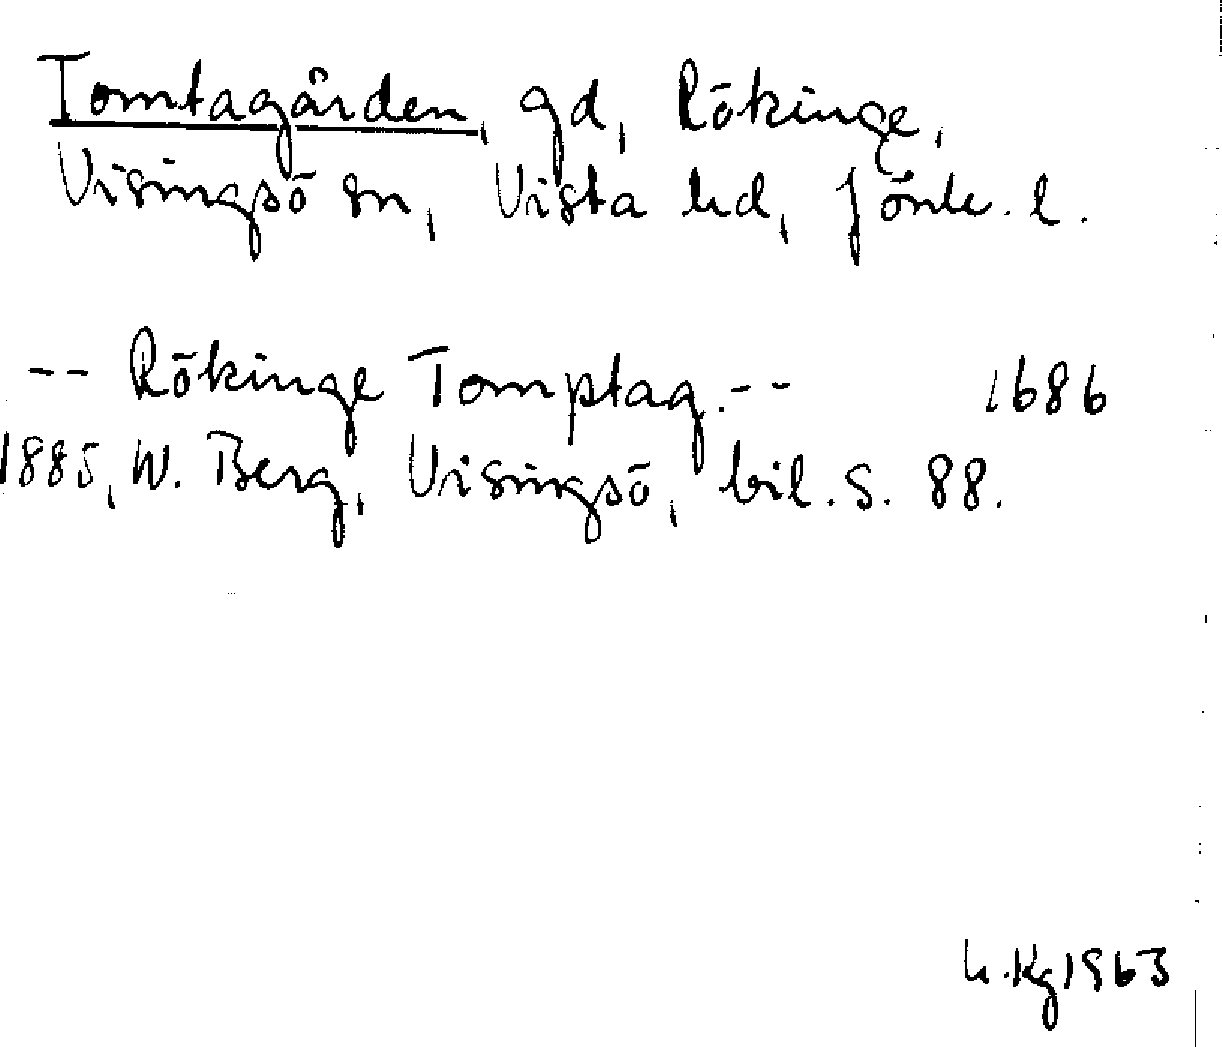 Tomtagården, gd, Rökinge,
Visingsö sn, Vista hd, Jönk. l.
-- Rökinge Tomptag. -- 1686
1885, W. Berg, Visingsö, bil. s. 88.
h. Kg 1963